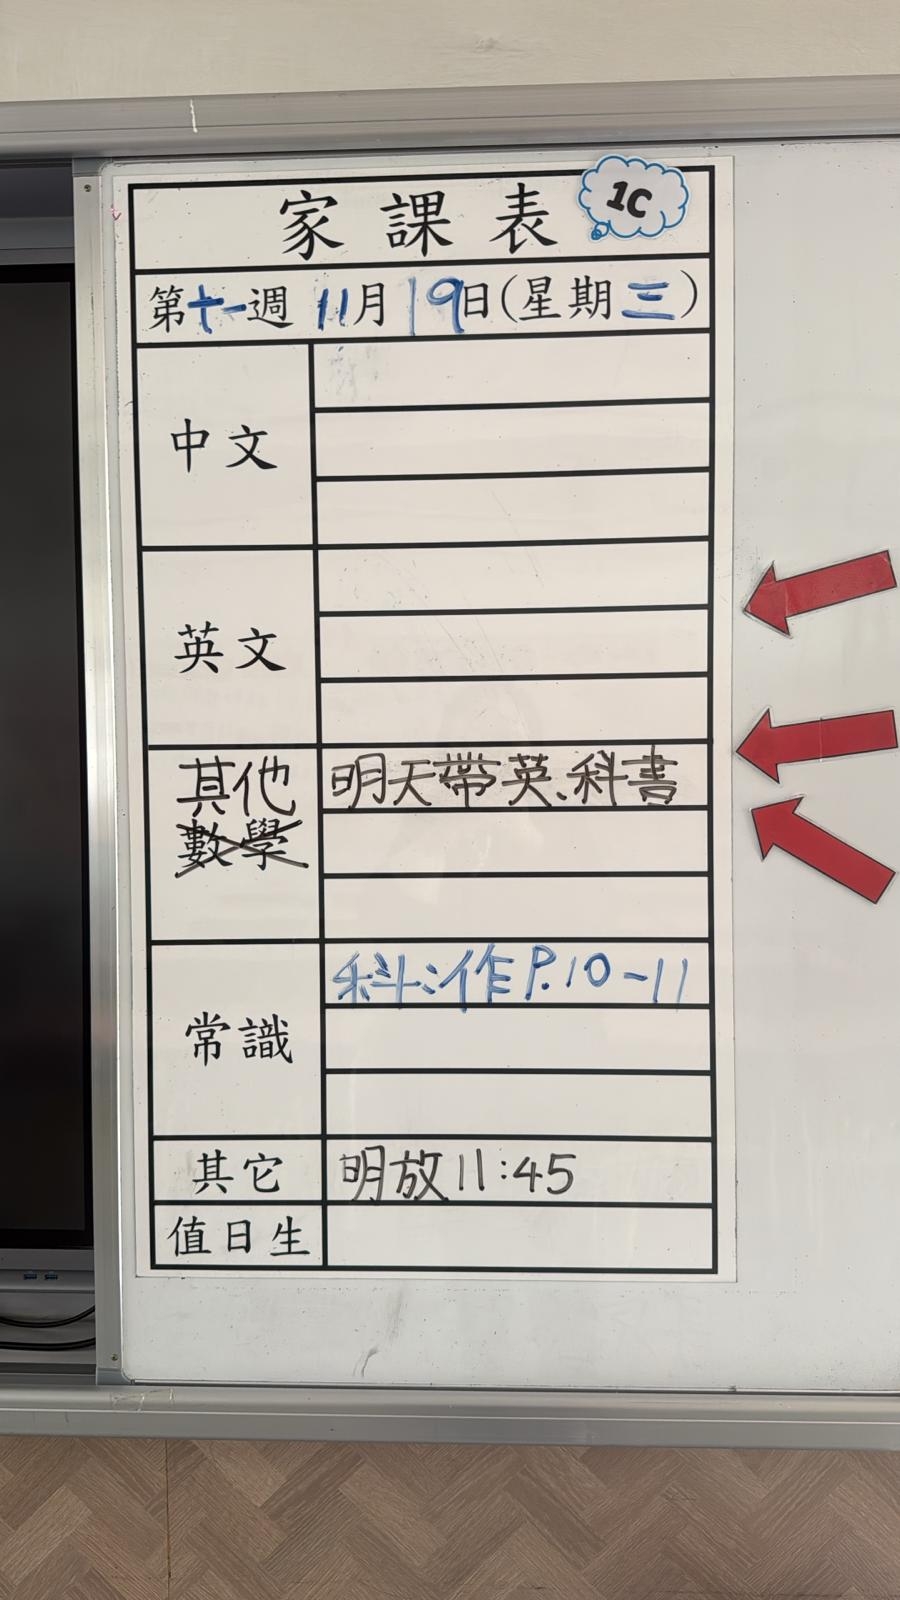 家課表 1C
第十一週 11月19日(星期三)
中文
英文
其他 明天帶英、科書
數學
科:作P.10-11
常識
其它 明放11:45
值日生